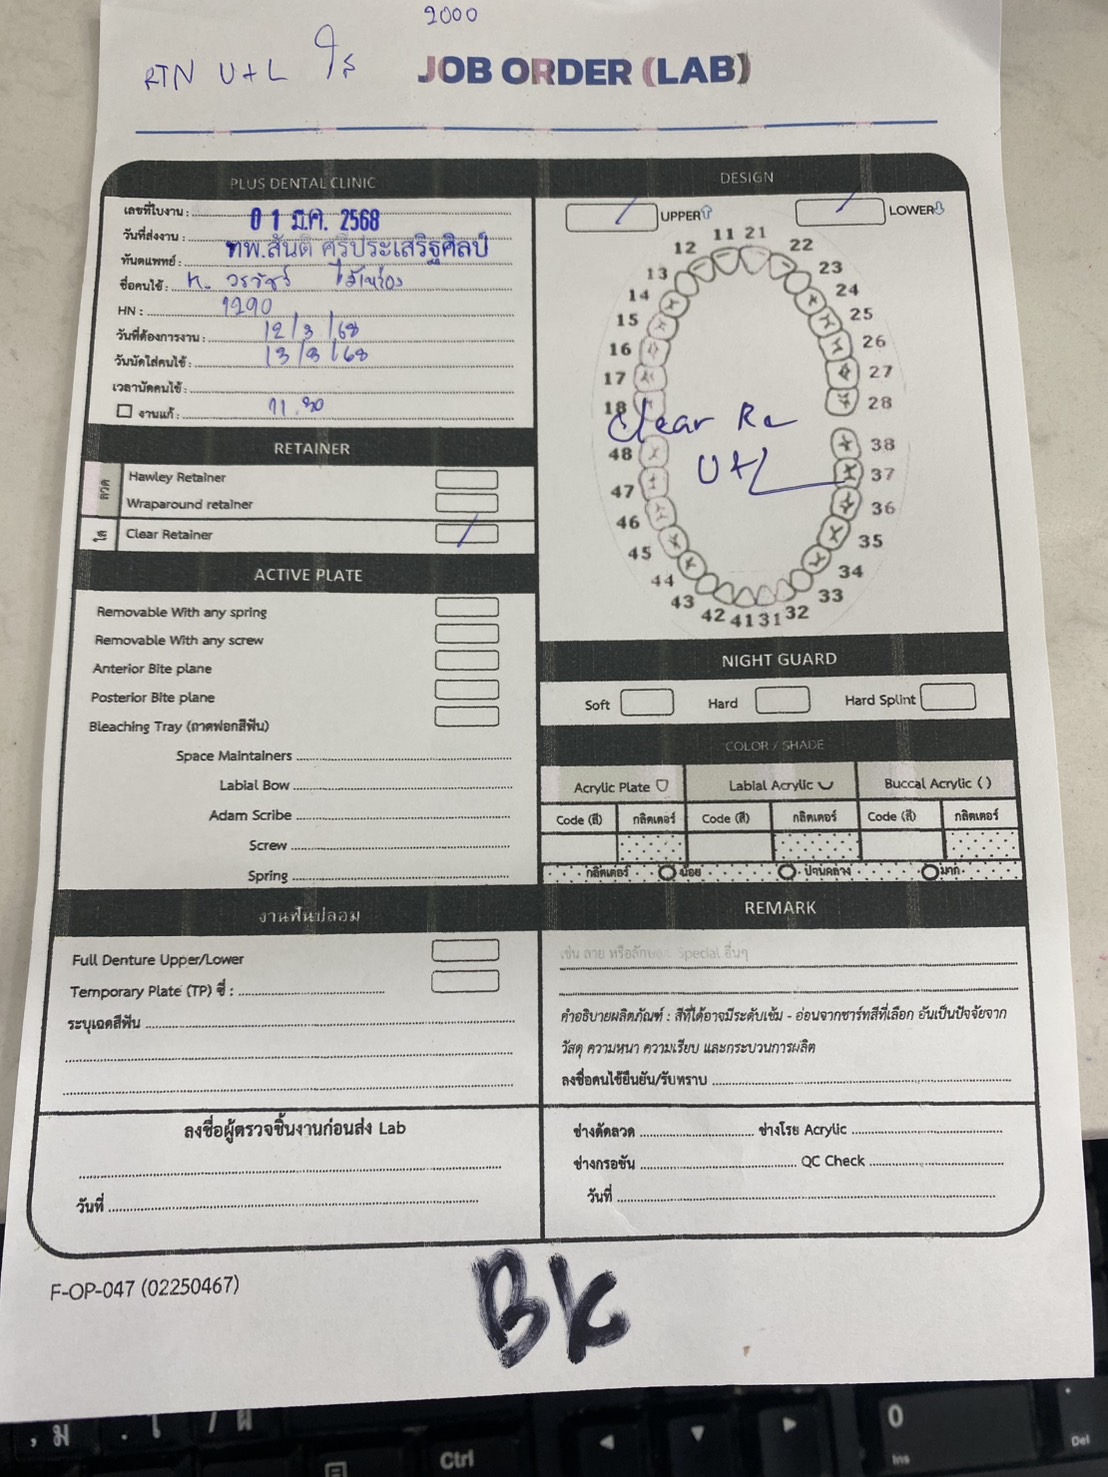 2000
RTN U+L ใส
JOB ORDER (LAB)
PLUS DENTAL CLINIC
เลขที่ใบงาน :
วันที่ส่งงาน : 01 มี.ค. 2568
ทันตแพทย์ : ทพ.สันติ ศรีประเสริฐศิลป์
ชื่อคนไข้ :
HN : 1290
วันที่ต้องการงาน : 12/3/68
วันนัดใส่คนไข้ : 13/3/68
เวลานัดคนไข้ :
งานแก้ : 11.30
RETAINER
ลวด
Hawley Retainer
Wraparound retainer
ใส
Clear Retainer /
ACTIVE PLATE
Removable With any spring
Removable With any screw
Anterior Bite plane
Posterior Bite plane
Bleaching Tray (ถาดฟอกสีฟัน)
Space Maintainers
Labial Bow
Adam Scribe
Screw
Spring
งานฟันปลอม
Full Denture Upper/Lower
Temporary Plate (TP) ซี่ :
ระบุเฉดสีฟัน
ลงชื่อผู้ตรวจชิ้นงานก่อนส่ง Lab
วันที่
DESIGN
/ UPPER / LOWER
11 21
12 22
13 23
14 24
15 25
16 26
17 27
18 28
Clear Re
U+L
48 38
47 37
46 36
45 35
44 34
43 33
42 41 31 32
NIGHT GUARD
Soft Hard Hard Splint
COLOR / SHADE
Acrylic Plate Labial Acrylic Buccal Acrylic ( )
Code (สี) กลิตเตอร์ Code (สี) กลิตเตอร์ Code (สี) กลิตเตอร์
กลิตเตอร์ น้อย ปานกลาง มาก
REMARK
เช่น ลาย หรือลักษณะ Special อื่นๆ
คำอธิบายผลิตภัณฑ์ : สีที่ได้อาจมีระดับเข้ม - อ่อนจากชาร์ทสีที่เลือก อันเป็นปัจจัยจาก
วัสดุ ความหนา ความเรียบ และกระบวนการผลิต
ลงชื่อคนไข้ยืนยัน/รับทราบ
ช่างดัดลวด ช่างโรย Acrylic
ช่างกรอขัน QC Check
วันที่
F-OP-047 (02250467)
BK
Ctrl
0
Ins
Del